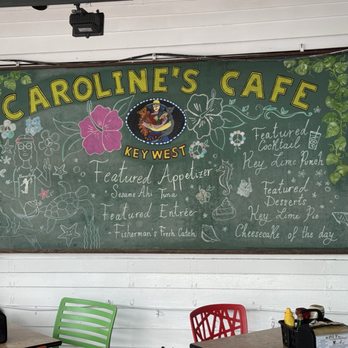 CAROLINE'S CAFE
CAROLINE'S CAFE
KEY WEST
Featured Appetizer
Sesame Ahi Tuna
Featured Entrée
Fisherman's Fresh Catch
Featured
Cocktail
Key Lime Punch
Featured
Desserts
Key Lime Pie
Cheesecake of the day